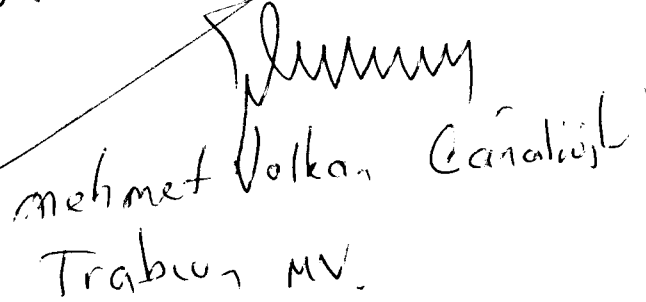 Mehmet Volkan Canalioğlu
Trabzon MV.